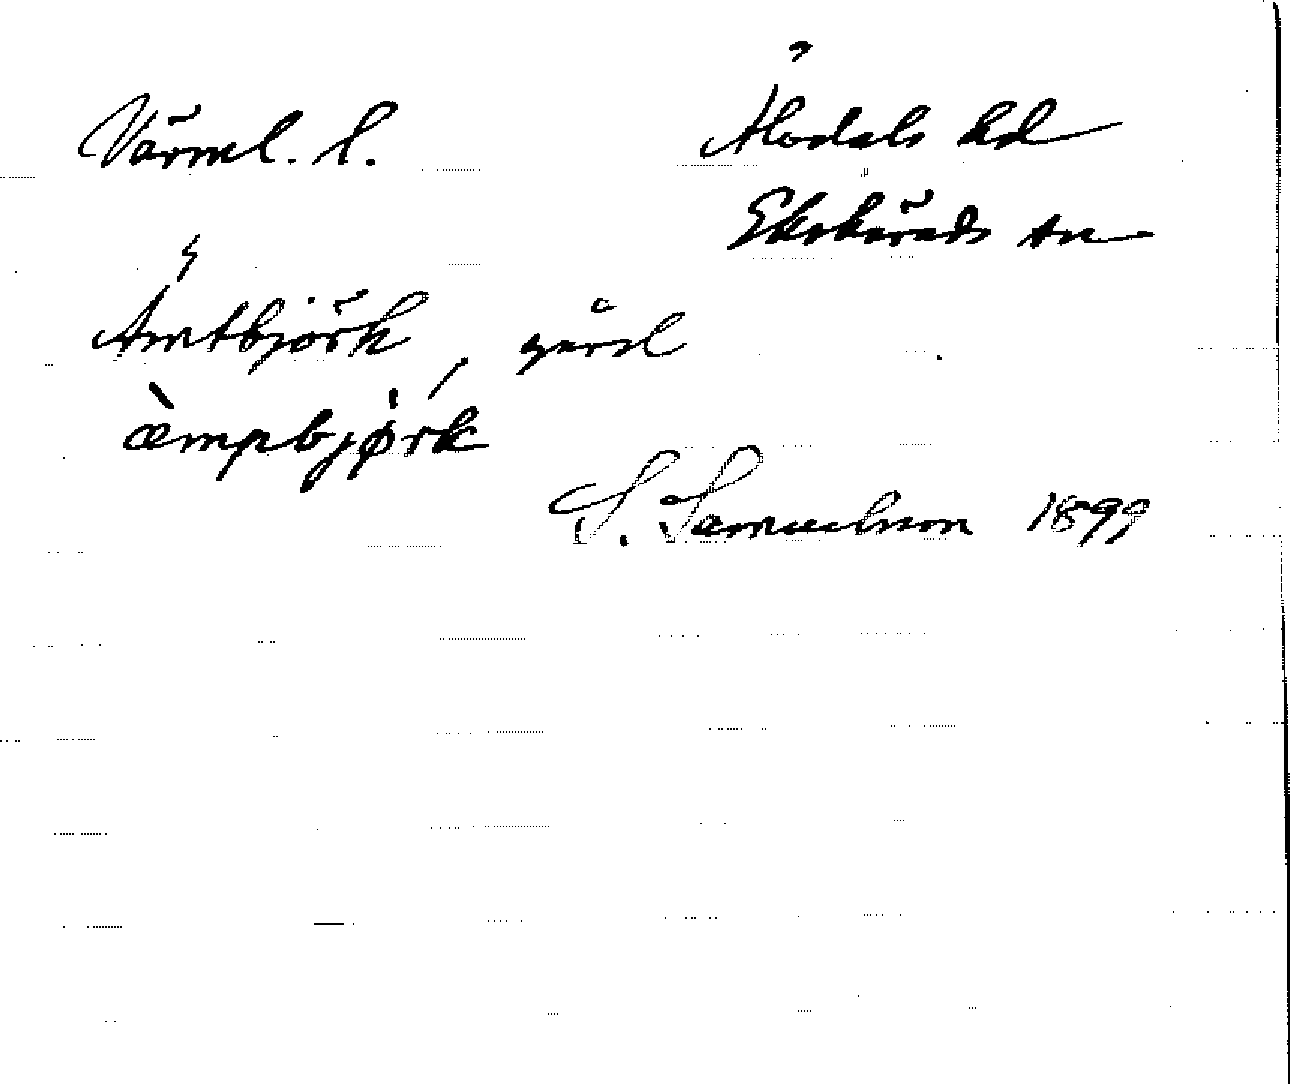 Värml. l.
Älvdals hd
Ekshärads sn
Ämtbjörk, gård
æ̀mpbjø̀ŕk
S. Samuelsson 1899